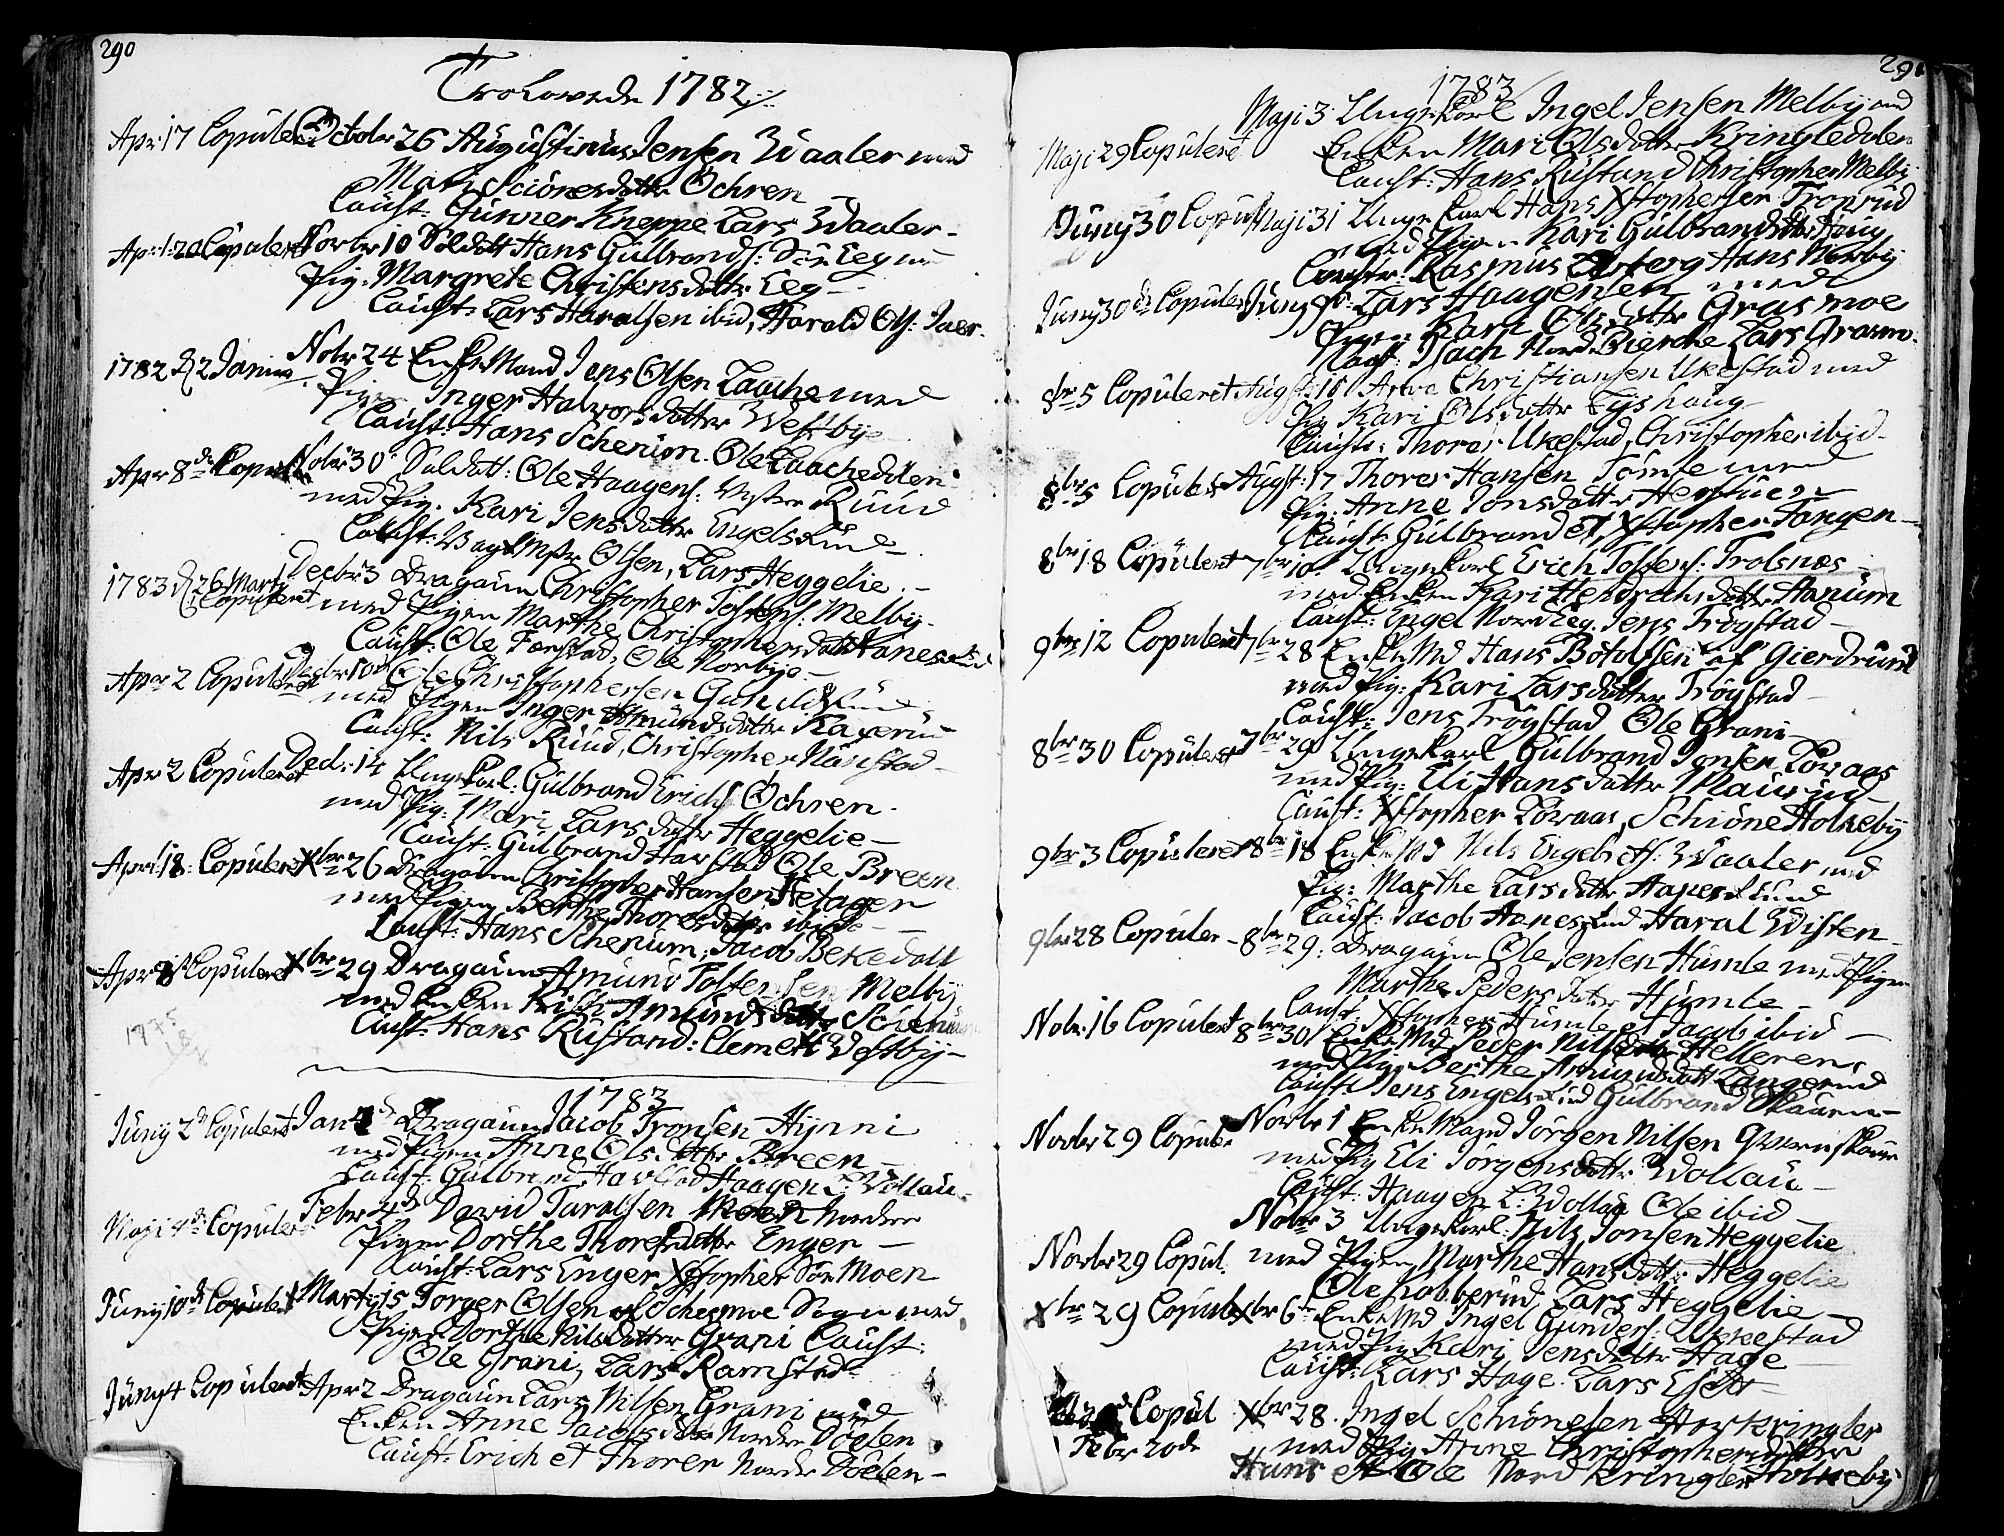 290
Trolowede 1782
Apr: 17 Copuleret October 26 Augustinus Jensen Waaler med
Mari Sciönesdatter Ochren
Caust: Gunner Kneppe Lars Waaler
Apr: 20 Copuleret Novbr 10 Soldatt Hans Gulbrands: Eeg
Pig: Margrete Christensdatter Eeg
Caust: Lars Haralsen ibid, Harald Ols: Jaer
1782 d 2 Janu Nobr 24 Enke Mand Jens Olsen Laache med
Pigen Inger Halvorsdatter Westbye
Caust: Hans Scherium. Ole Laachedelen
Apr 8de Copul Nobr 30 Soldatt: Ole Haagens: Ruud
med Pig: Kari Jensdatter Engelslund
Caust: Olsen, Lars Heggelie
1783 d 26 Marty Copuleret Decbr 3 Dragoun Christopher Tostens: Melby
med Pigen Marthe Christophersdatt Haneslund
Caust: Ole Farstad, Ole Norbye
Apr 2 Copuleret Decbr 10 Ole Christophersen Gundslund
med Pigen Inger Amundsdatter Haverud
Caust: Nils Ruud, Christopher Narstad
Apr 2 Copuleret Decb: 14 Ungekarl: Gulbrand Erichs Ochren
med Pig: Mari Larsdatter Heggelie
Caust: Gulbrand Havstad Ole Breen
April 18 Copuleret Xbr 26 Dragoun Christopher Hansen Hetager
med Pigen Berthe Thoresdatter ibid
Caust: Hans Scherium, Jacob Bekedall
Apr 8 Copuleret Xbr 29 Dragoun Amund Tostensen Melby
med Enken Kisti Amundsdatter Scierium
Caust: Hans Rustand: Clemet Westby
1775
1783
Juny 2d Copuleret Jan 4 Dragoun Jacob Tronsen Hynni
med Pigen Anne Olsdatter Breen
Caust: Gulbrand Havstad Haagen L: Wollau
Maji 4de Copuleret Febr 2d David Taralsen Moen Nordre
Pigen Dorthe Thoresdatter Enger
Caust: Lars Enger Xstopher Sör Moen
Juny 10de Copuleret Marty 15 Torger Olsen Scheemoe Sogn med
Pigen Dorthe Nilsdatter Grani Caust:
Ole Grani, Lars Ramstad
Juny 4 Copuleret Apr 2 Dragoun Lars Nilsen Grani med
Enken Anne Jacobsdatter Nordre Döelen
Caust: Erich et Thorer Nordre Döelen
291
1783
Maji 29 Copuleret Maji 3 Ungekarl Ingel Jensen Melby med
Enken Mari Olsdatter Kringledalen
Caust: Hans Rustand Christopher Melby
Juny 30 Copul Maji 31 Ungekarl Hans Xstophersen Tronrud
med Pigen Kari Gulbrandsdatter Houg
Caust: Rasmus Hans Norby
Juny 30de Copuler Juny Lars Haagensen med
Pigen Karn Olsdatter Grasmoe
Caust: Isach Nord Bierche Lars Grasmo
8br 5 Copuleret Augst 10 Arve Christiansen Ukestad med
Pig Kari Olsdatter Eyshaug
Caust: Thorer Ukestad, Christopher ibid
8br 5 Copuler Augst: 17 Thorer Hansen Tömte med
Pig: Anne Jonsdatter Herstuen
Caust: Gulbrand et Xstopher Tangen
8br 18 Copuleret 7br 10 Ungekarl Erich Tostens: Trolsnæs
med Enken Kari Hendrichsdatter Hanum
Caust: Engel Nord Eeg. Jens Tröystad
9br 12 Copuleret 7br 28 Enke Md Hans Botolfsen af Gierdrum
med Pig: Kari Larsdatter Tröystad
Caust: Jens Tröystad Ole Grani
8br 30 Copuleret 7br 29 Ungekarl Gulbrand Jonsen Lövaas
med Pig: Eli Hansdatter Maurud
Caust: Xstopher Lövaas, Schiöne Holkeby
9br 3 Copuleret 8br 18 Enke Md Nils Engebrets: Waaler med
Pig: Marthe Larsdatter Haneslund
Caust: Jacob Haneslund Haral Wisten
9br 28 Copuler 8br 29: Dragoun Ole Jensen Humle med Pigen
Marthe Pedersdatter Humle
Caust: Xstopher Humle et Jacob ibid
Nobr: 16 Copuleret 8br 30 Enke Md Peder Nilsen Helleren
med Pigen Berthe Amundsdatt Langerud
Caust: Jens Engelslund Gulbrand Skauen
Novbr 29 Copuler Novbr 1 Enke Mand Jörgen Nilsen Qvernskoun
med Pig Eli Jorgensdatter Wollau
Caust: Haagen L: Wollau Ole ibid
Novbr 29 Copul: Nobr 3 Ungekarl: Nils Jonsen Heggelie
med Pigen Marthe Hansdatter Heggelie
Ole Robberud, Lars Heggelie
Xbr 29 Copuler Xbr 6 Enke Md Ingel Gunders: Ukestad
med Pig Kari Jensdatter Hage
Caust: Lars Hage Lars
Copul Xbr 28. Ingel Schiönesen Hoekringler
Febr 20de med Pig Anne Christophersdatter
Hans et Ole Nord Kringler Holkeby